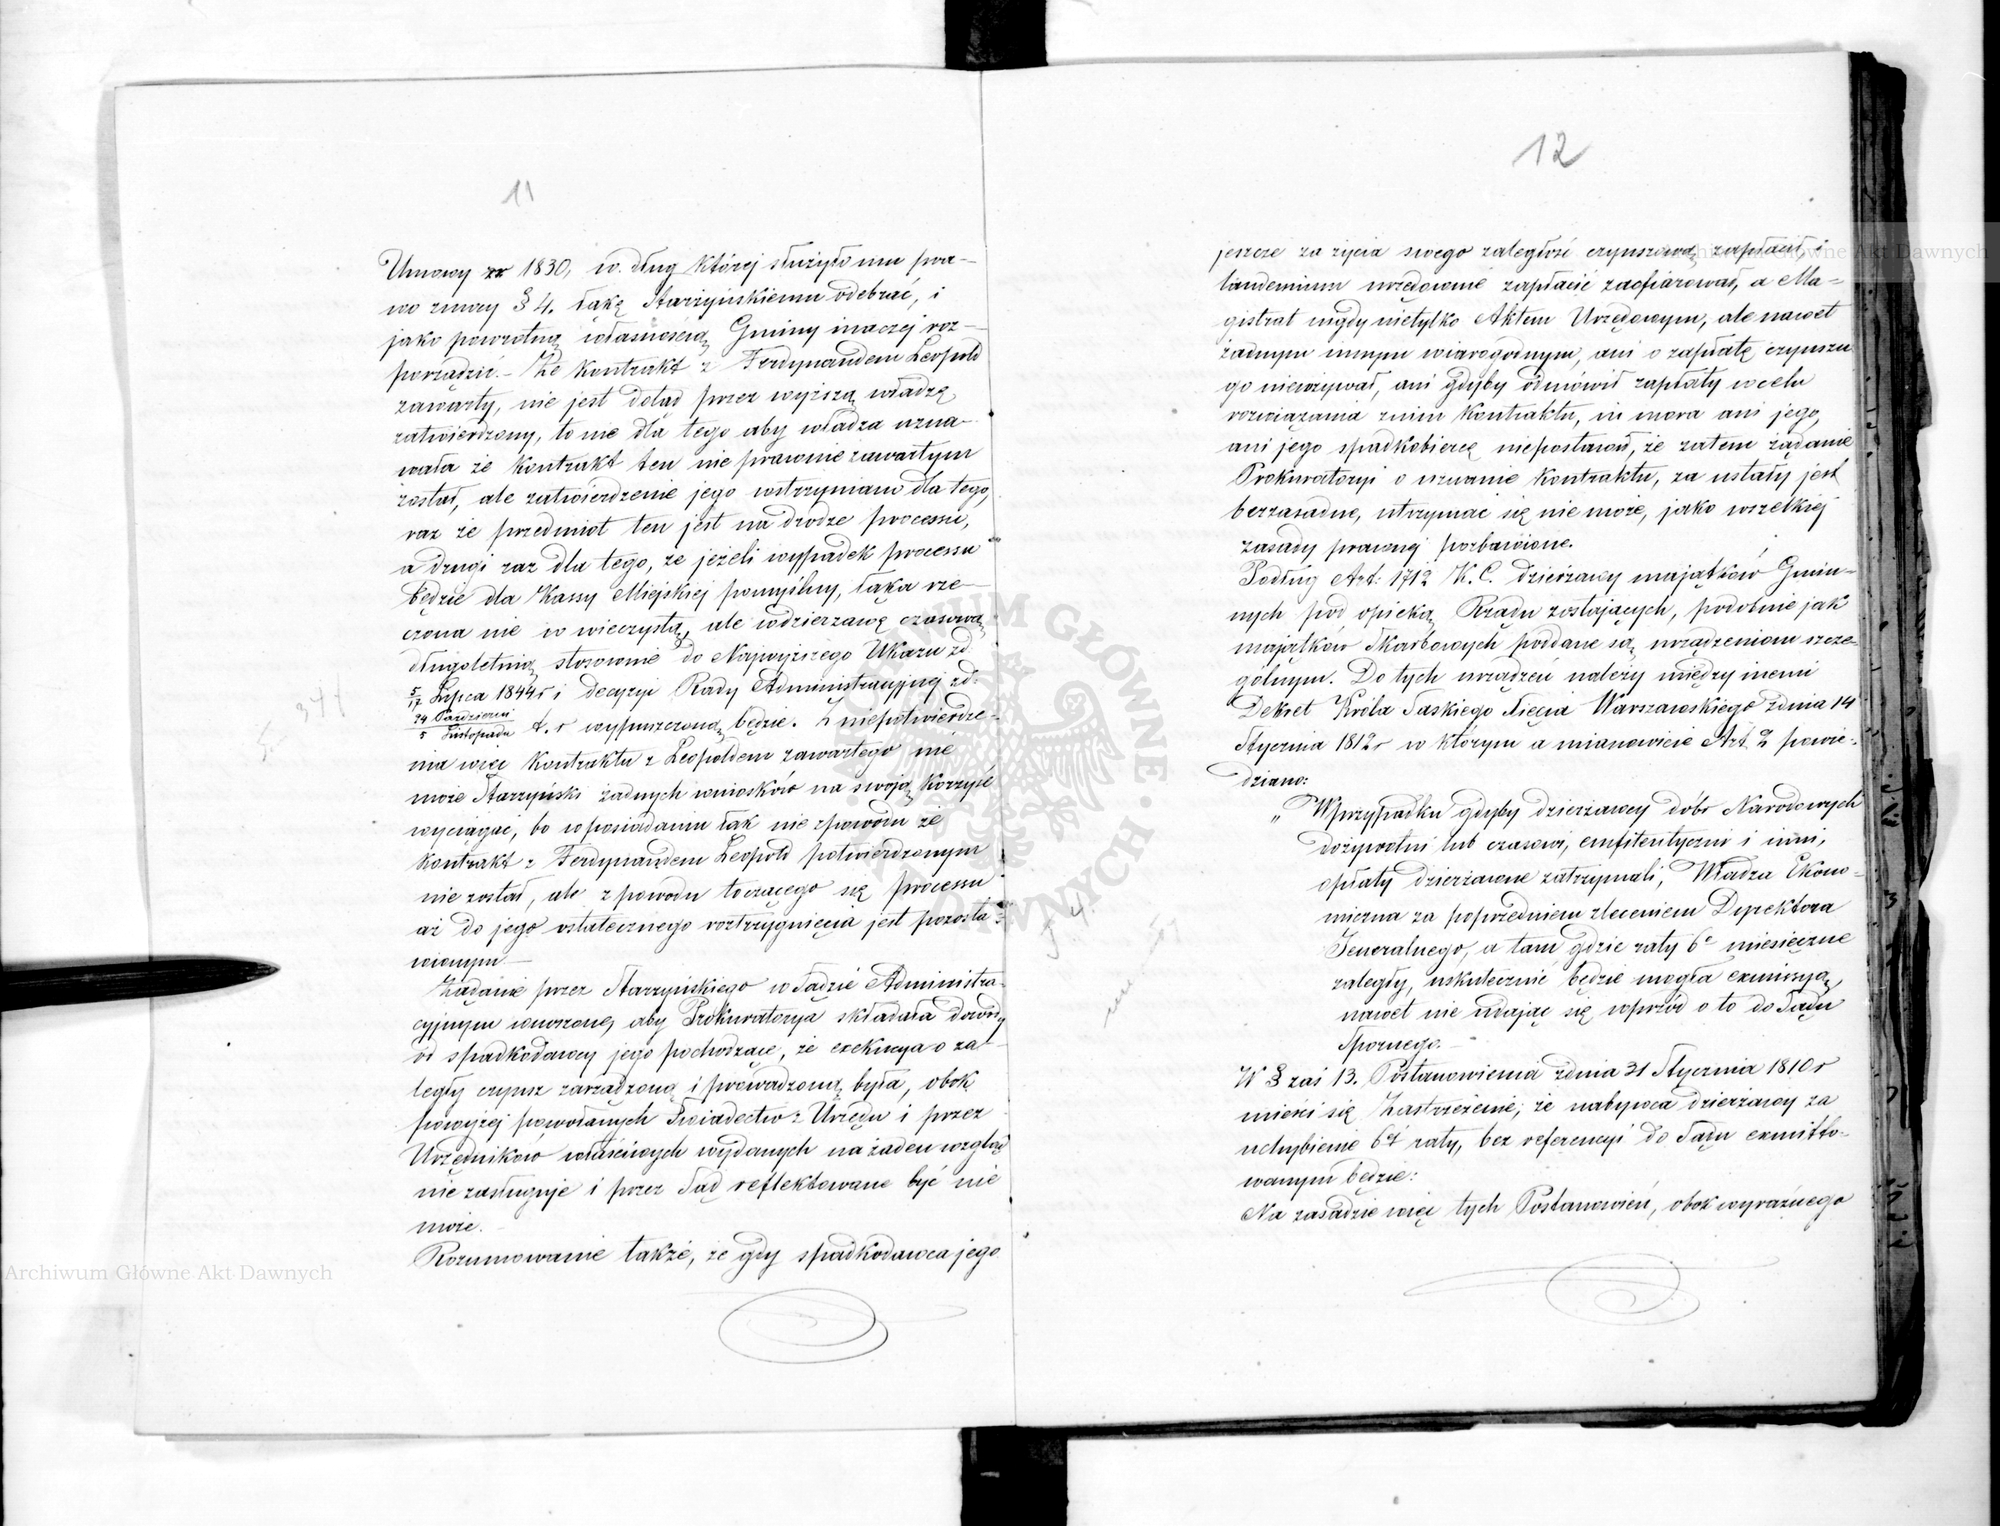 11
Umowy zr 1830, w. dług której służyło mu pra-
wo zmocy § 4. łąkę Starzyńskiemu odebrać, i
jako powrotną własnością Gminy inaczej roz-
porządzić. - Że Kontrakt z Ferdynandem Leopold
zawarty, nie jest dotąd przez wyższą władzę
zatwierdzony, to nie dla tego aby władza uzna-
wała że Kontrakt ten nie prawnie zawartym
został, ale zatwierdzenie jego wstrzymano dla tego,
raz że przedmiot ten jest na drodze processu,
a drugi raz dla tego, że jeżeli wypadek processu
będzie dla Kassy Miejskiej pomyślny, łąka rze-
czona nie w wieczystą, ale wdzierzawę czasową
długoletnią stosownie do Najwyższego Ukazu zd
5/17 Lipca 1844 r i decyzyi Rady Administracyjnej zd.
24 Październi/5 Listopada t. r wypuszczoną będzie. Z niepotwierdze-
nia więc Kontraktu z Leopoldem zawartego nie
może Starzyński żadnych wniosków na swoją Korzyść
wyciągać, bo wposiadaniu łąk nie zpowodu że
Kontrakt z Ferdynandem Leopold potwierdzonym
nie został, ale z powodu toczącego się processu
aż do jego ostatecznego roztrzygnięcia jest pozosta-
wionym. -
Żądanie przez Starzyńskiego w Sądzie Administra-
cyjnym wnoszone, aby Prokuratorya składała dowody
od spadkodawcy jego pochodzące, że exekucya o za-
legły czynsz zarządzoną i prowadzoną była, obok
powyżej powołanych Świadectw z Urzędu i przez
Urzędników właściwych wydanych na żaden wzgląd
nie zasługuje i przez Sąd reflektowane być nie
może. -
Rozumowanie także, że gdy spadkodawca jego
12
jeszcze za życia swego zaległość czynszową zapłacił, i
laudemium urzędownie zapłacić zaofiarował, a Ma-
gistrat nigdy nietylko Aktem Urzędowym, ale nawet
żadnym innym wiarogodnym, ani o zapłatę czynszu
go niewzywał, ani gdyby odmówił zapłaty wcelu
rozwiązania znim Kontraktu, in mora ani jego,
ani jego spadkobiercę niepostawił, że zatem żądanie
Prokuratoryi o uznanie Kontraktu, za ustały jest
bezzasadne, utrzymać się nie może, jako wszelkiej
zasady prawnej pozbawione.
Podług Art: 1712 K. C. dzierżawy majątków Gmin-
nych pod opieką Rządu zostających, podobnie jak
majątków Skarbowych poddane są urządzeniom szcze-
gólnym. Do tych urządzeń należy między inemi
Dekret Króla Saskiego Xięcia Warszawskiego zdnia 14
Stycznia 1812 r w którym a mianowicie Art 2 powie-
dziano:
„ Wprzypadku gdyby dzierżawcy dóbr Narodowych
dożywotni lub czasowi, emfiteutyczni i inni,
opłaty dzierżawne zatrzymali, Władza Ekono-
miczna za poprzedniem zleceniem Dyrektora
Jeneralnego, a tam gdzie raty 6e miesięczne
zaległy, uskutecznić będzie mogła exmissyą,
nawet nie udając się wprzód o to do Sądu
Spornego. -
W § zaś 13. Postanowienia zdnia 31 Stycznia 1810 r
mieści się Zastrzeżenie, że nabywca dzierżawy za
uchybienie 6ej raty, bez referencyi do Sądu exmitto-
wanym będzie:
Na zasadzie więc tych Postanowień, obok wyraźnego
Archiwum Główne Akt Dawnych
Archiwum Główne Akt Dawnych
ARCHIWUM GŁÓWNE AKT DAWNYCH